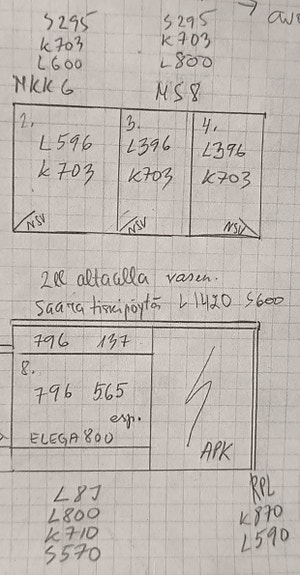 S295 S295
K703 K703
L600 L800
MKK6 MS8
2. 3. 4.
L596 L396 L396
K703 K703 K703
NSV NSV NSV
altaalla vasen.
Saara tiskipöytä L1420 S600
796 137
8.
796 565
esp.
ELEGA 800
APK
L8J RPL
L800 K870
K710 L590
S570